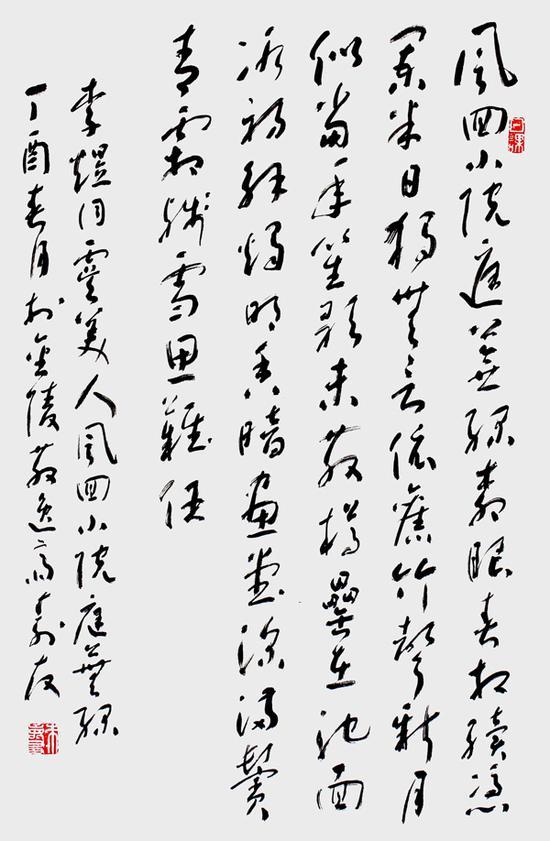 風回小院庭蕪綠柳眼春相續憑
闌半日獨無言依舊竹聲新月
似當年笙歌未散樽罍在池面
冰初解燭明香暗畫堂深滿鬢
青霜殘雪思難任
李煜詞虞美人風回小院庭蕪綠
丁酉春月於金陵散逸齋壽友